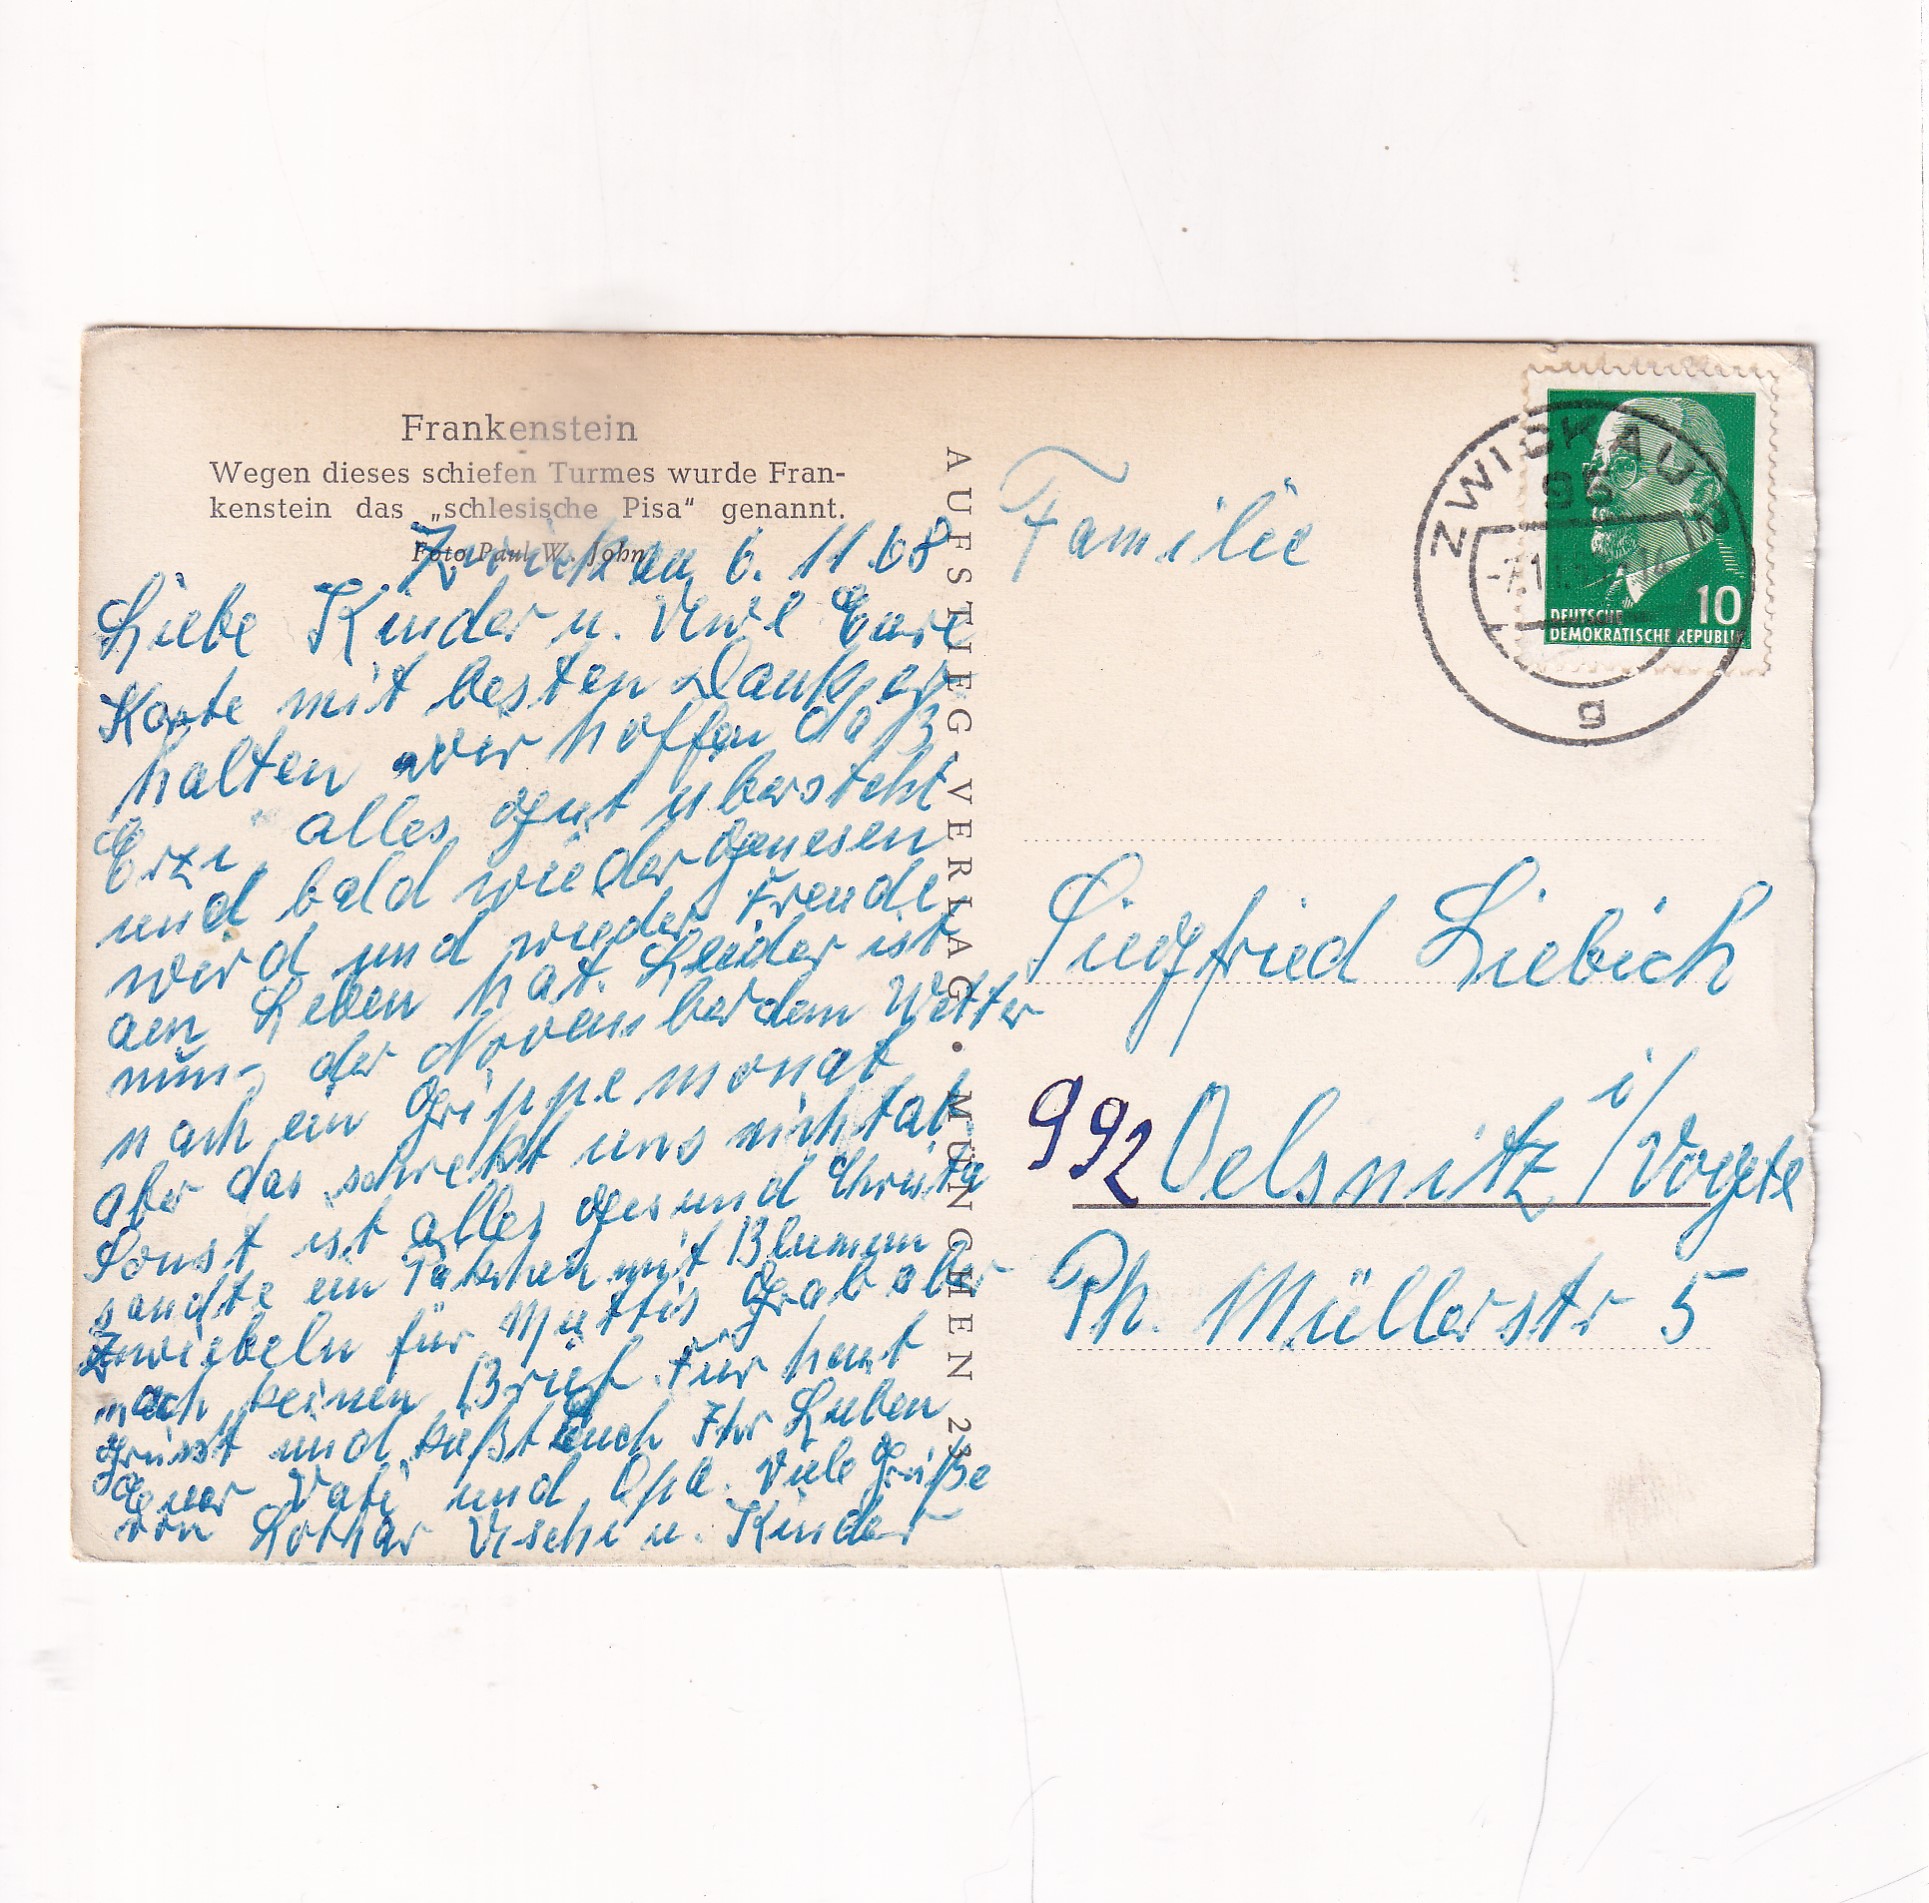 Frankenstein
Wegen dieses schiefen Turmes wurde Fran-
kenstein das „schlesische Pisa" genannt.
Foto Paul W. John
Zwickau 6. 11 68
Liebe Kinder u. Eure
Karte mit besten Dank er
halten wir hoffen daß
alles gut übersteht
und bald wieder genesen
wird und wieder Freude
am Leben hat. Leider ist
nun der November dem Wetter
nach ein Grippemonat
aber das schrekt uns nicht ab
Sonst ist alles gesund Christa
sandte ein mit Blumen
Zwiebeln für Muttis Grab aber
noch keinen Brief. Für heut
grüßt und küßt Euch Ihr Lieben
Euer Vati und Opa. Viele Grüße
von Lothar u. Kinder
AUFSTIEG-VERLAG • MÜNCHEN 23
Familie
Siegfried Liebich
992 Oelsnitz i/Vogtl
Ph. Müllerstr 5
ZWICKAU
95
g
10
DEUTSCHE
DEMOKRATISCHE REPUBLIK